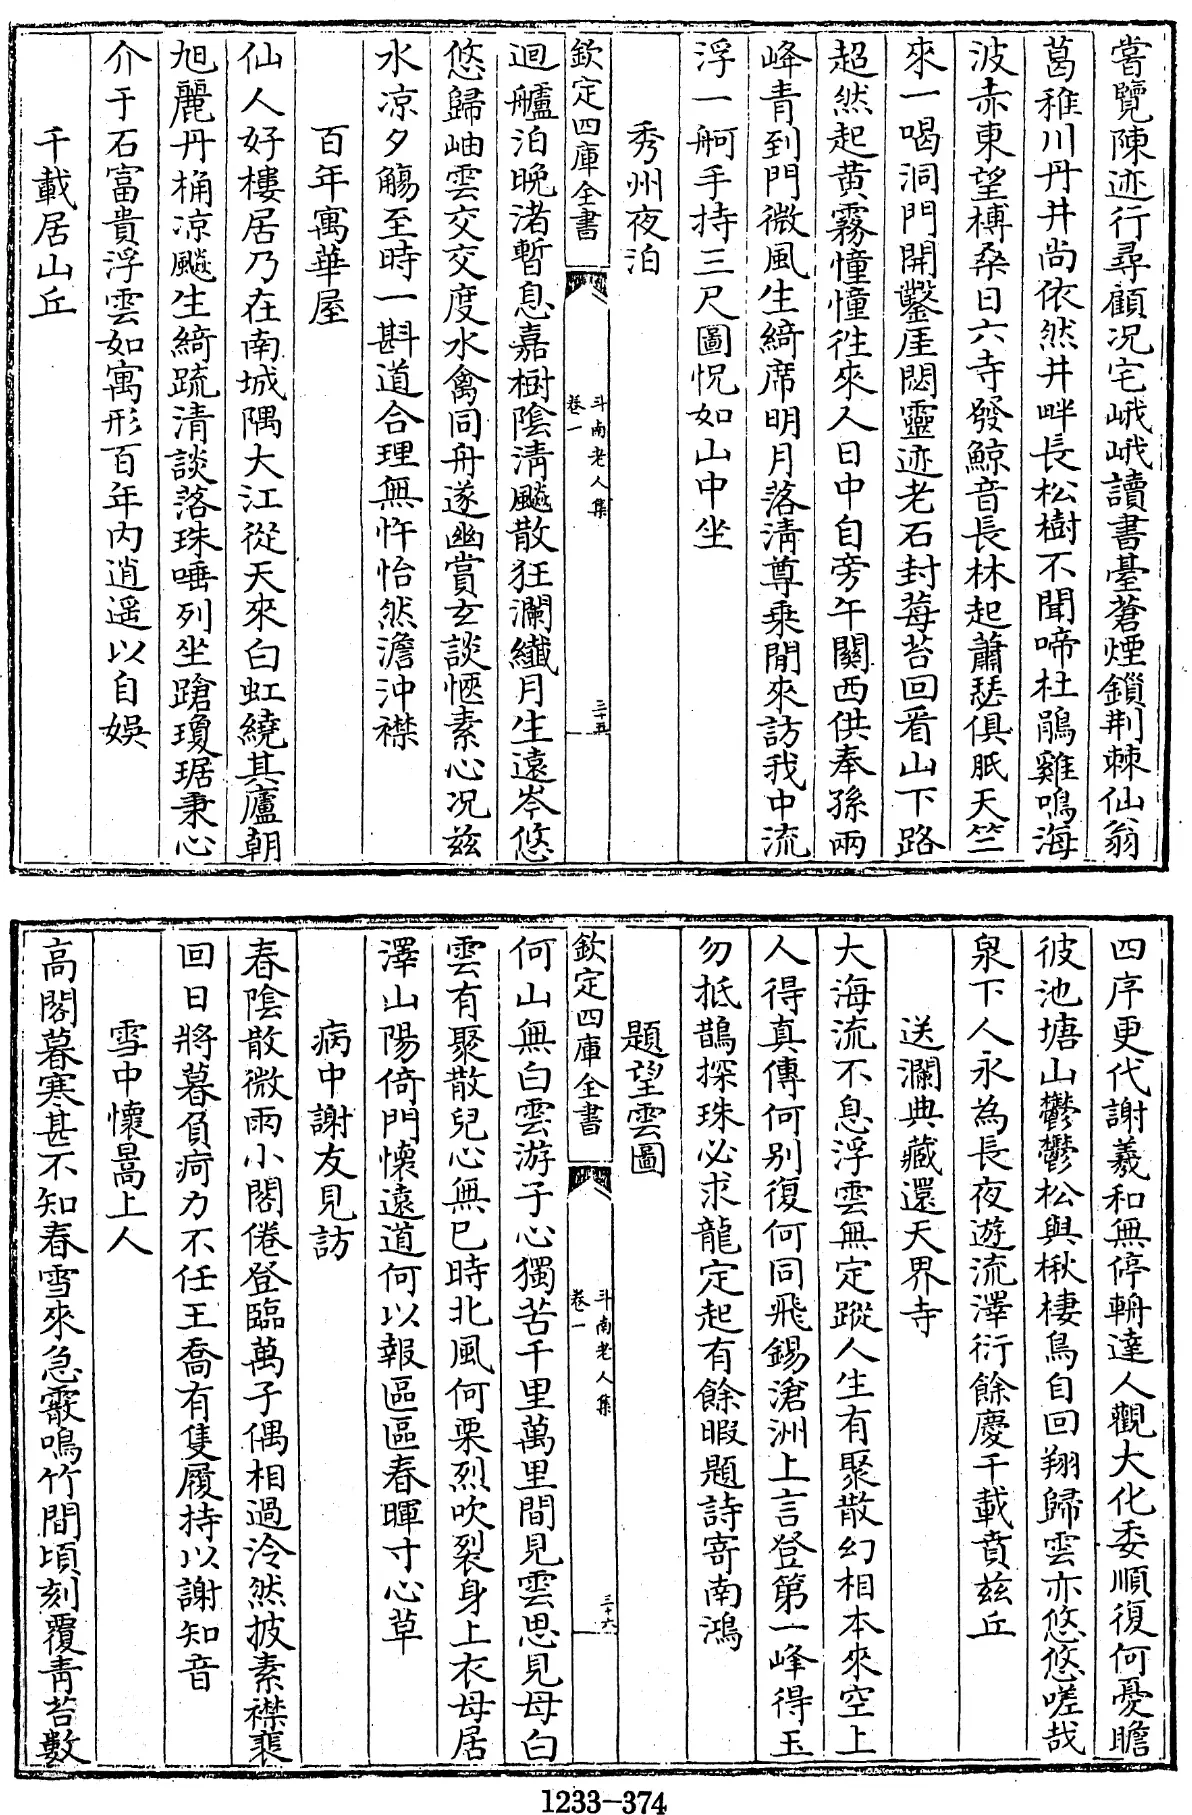 嘗覽陳迹行尋顧况宅峨峨讀書臺蒼煙鎖荆棘仙翁
葛稚川丹井尚依然井畔長松樹不聞啼杜鵑雞鳴海
波赤東望榑桑日六寺發鯨音長林起蕭瑟俱胝天竺
來一喝洞門開鑿厓閟靈迹老石封莓苔回看山下路
超然起黄霧憧憧徃來人日中自旁午闗西供奉孫兩
峰青到門微風生綺席明月落清尊乗閒來訪我中流
浮一舸手持三尺圖怳如山中坐
秀州夜泊
欽定四庫全書
斗南老人集
卷一
三十五
迴艫泊晩渚暫息嘉樹陰清飈散狂瀾纖月生遠岑悠
悠歸岫雲交交度水禽同舟遂幽賞玄談愜素心况兹
水凉夕觴至時一斟道合理無忤怡然澹沖襟
百年寓華屋
仙人好樓居乃在南城隅大江從天來白虹繞其廬朝
旭麗丹桷凉飈生綺疏清談落珠唾列坐蹌瓊琚秉心
介于石富貴浮雲如寓形百年内逍遥以自娛
千載居山丘
四序更代謝羲和無停輈達人觀大化委順復何憂瞻
彼池塘山鬱鬱松與楸棲鳥自回翔歸雲亦悠悠嗟哉
泉下人永為長夜遊流澤衍餘慶千載賁兹丘
送瀾典藏還天界寺
大海流不息浮雲無定蹤人生有聚散幻相本來空上
人得真傳何别復何同飛錫滄洲上言登第一峰得玉
勿抵鵲探珠必求龍定起有餘暇題詩寄南鴻
題望雲圖
欽定四庫全書
斗南老人集
卷一
三十六
何山無白雲游子心獨苦千里萬里間見雲思見母白
雲有聚散兒心無已時北風何栗烈吹裂身上衣母居
澤山陽倚門懷遠道何以報區區春暉寸心草
病中謝友見訪
春陰散微雨小閣倦登臨萬子偶相過泠然披素襟裴
回日將暮負疴力不任王喬有隻履持以謝知音
雪中懷暠上人
高閣暮寒甚不知春雪來急霰鳴竹間頃刻覆青苔數
1233-374